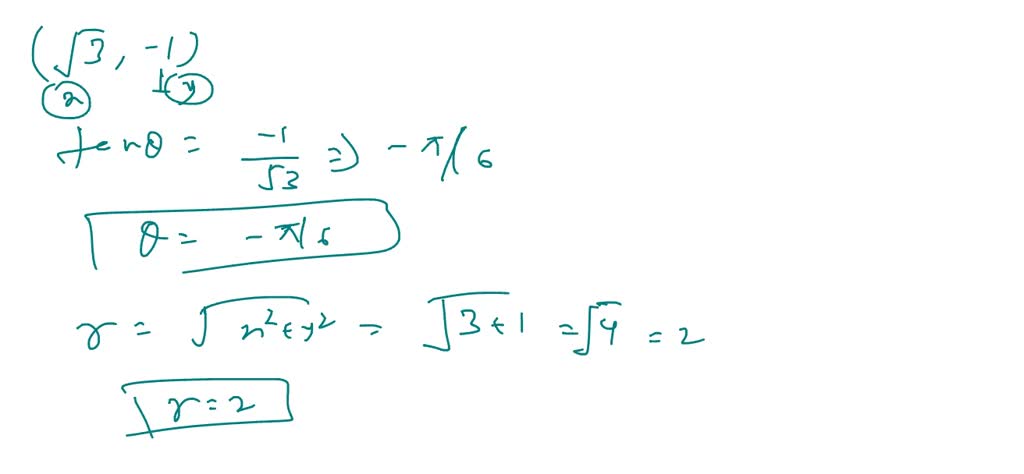 (√3, -1)
x y
tanθ = -1/√3 ⇒ -π/6
θ = -π/6
r = √x²+y² = √3+1 = √4 = 2
r = 2